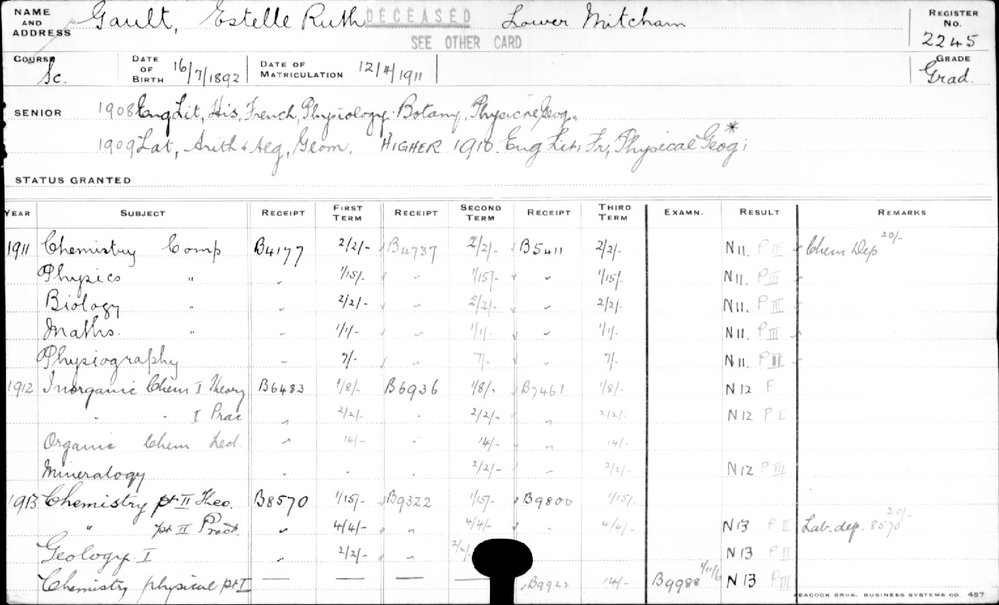 NAME AND ADDRESS Gault, Estelle Ruth DECEASED Lower Mitcham REGISTER No. 2245
SEE OTHER CARD
COURSE Sc. DATE OF BIRTH 16/7/1892 DATE OF MATRICULATION 12/4/1911 GRADE Grad.
SENIOR 1908 Eng Lit, His, French, Physiology, Botany, Physical Geog.
1909 Lat, Arith & Alg, Geom. HIGHER 1910. Eng Lit, Fr, Physical Geog*;
STATUS GRANTED
YEAR SUBJECT RECEIPT FIRST TERM RECEIPT SECOND TERM RECEIPT THIRD TERM EXAMN. RESULT REMARKS
1911 Chemistry Comp B4177 2/2/- B4737 2/2/- B5411 2/2/- N11. P III Chem Dep 20/-
Physics " " 1/15/- " 1/15/- " 1/15/- N11. P III
Biology " " 2/2/- " 2/2/- " 2/2/- N11. P III
Maths. " " 1/1/- " 1/1/- " 1/1/- N11. P III
Physiography " 7/- " 7/- " 7/- N11. P III
1912 Inorganic Chem I Theory B6483 1/8/- B6936 1/8/- B7461 1/8/- N12 F
" " I Prac " 2/2/- " 2/2/- " 2/2/- N12 P
Organic Chem " 14/- " 14/- " 14/-
Mineralogy " " " 2/2/- " 2/2/- N12 P III
1913 Chemistry pt II Theo. B8570 1/15/- B9322 1/15/- B9800 1/15/-
" pt II Pract. " 4/4/- " 4/4/- " 4/4/- N13 P II Lab. dep. 8570 20/-
Geology I " 2/2/- 2/2/- N13 P II
Chemistry physical pt I — — — B9922 14/- B9988 N13 P III
PEACOCK BROS. BUSINESS SYSTEMS CO. 457